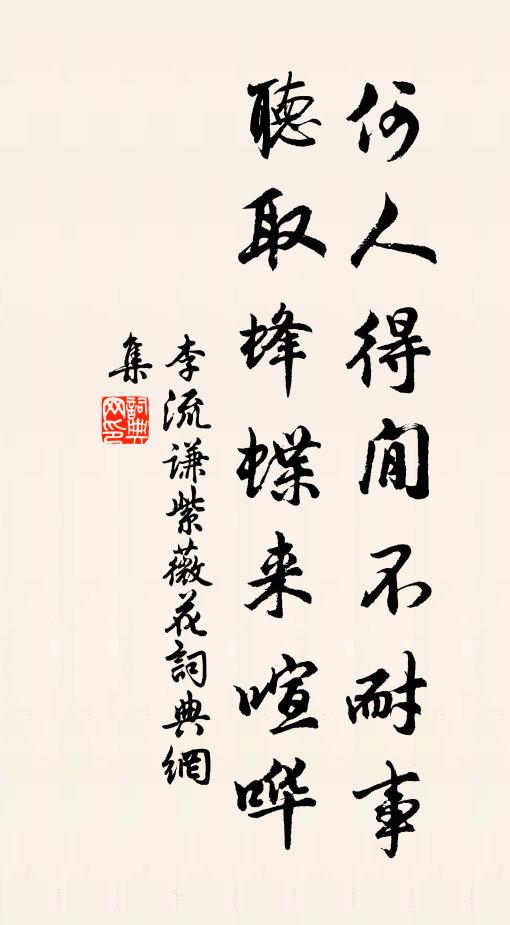 何人得閒不耐事
聽取蜂蝶来喧哗
李流谦紫薇花詞典網
集
詞典
网印